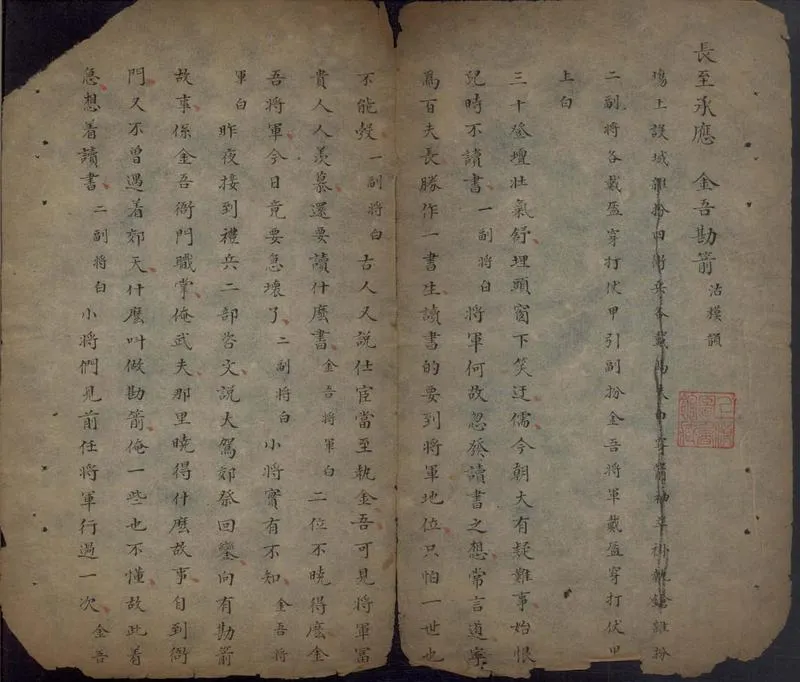 長至承應 金吾勘箭 沽模韻
場上設城雜扮四衛兵各戴馬夫巾穿箭袖卒褂執鎗雜扮
二副將各戴盔穿打仗甲引副扮金吾將軍戴盔穿打仗甲
上白
三十登壇壯氣舒埋頭窗下笑迂儒今朝大有疑難事始恨
兒時不讀書 一副將白 將軍何故忽發讀書之想常言道寧
爲百夫長勝作一書生讀書的要到將軍地位只怕一世也
不能彀 一副將白 古人又說仕宦當至執金吾可見將軍富
貴人人羨慕還要讀什麼書 金吾將軍白 二位不曉得麼金
吾將軍今日竟要急壞了 二副將白 小將實有不知 金吾將
軍白 昨夜接到禮兵二部咨文說大駕郊祭回鑾向有勘箭
故事係金吾衙門職掌俺武夫那里曉得什麼故事自到衙
門又不曾遇着郊天什麼叫做勘箭俺一些也不懂故此着
急想着讀書 二副將白 小將們見前任將軍行過一次 金吾